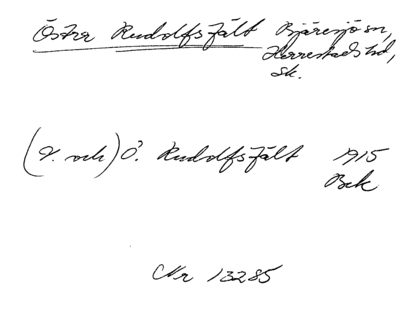 Öster Rudolfsfält Bjäresjö sn,
Herrestads hd,
Sk.
(V. och) Ö. Rudolfsfält 1915
Bek
Nr 13285